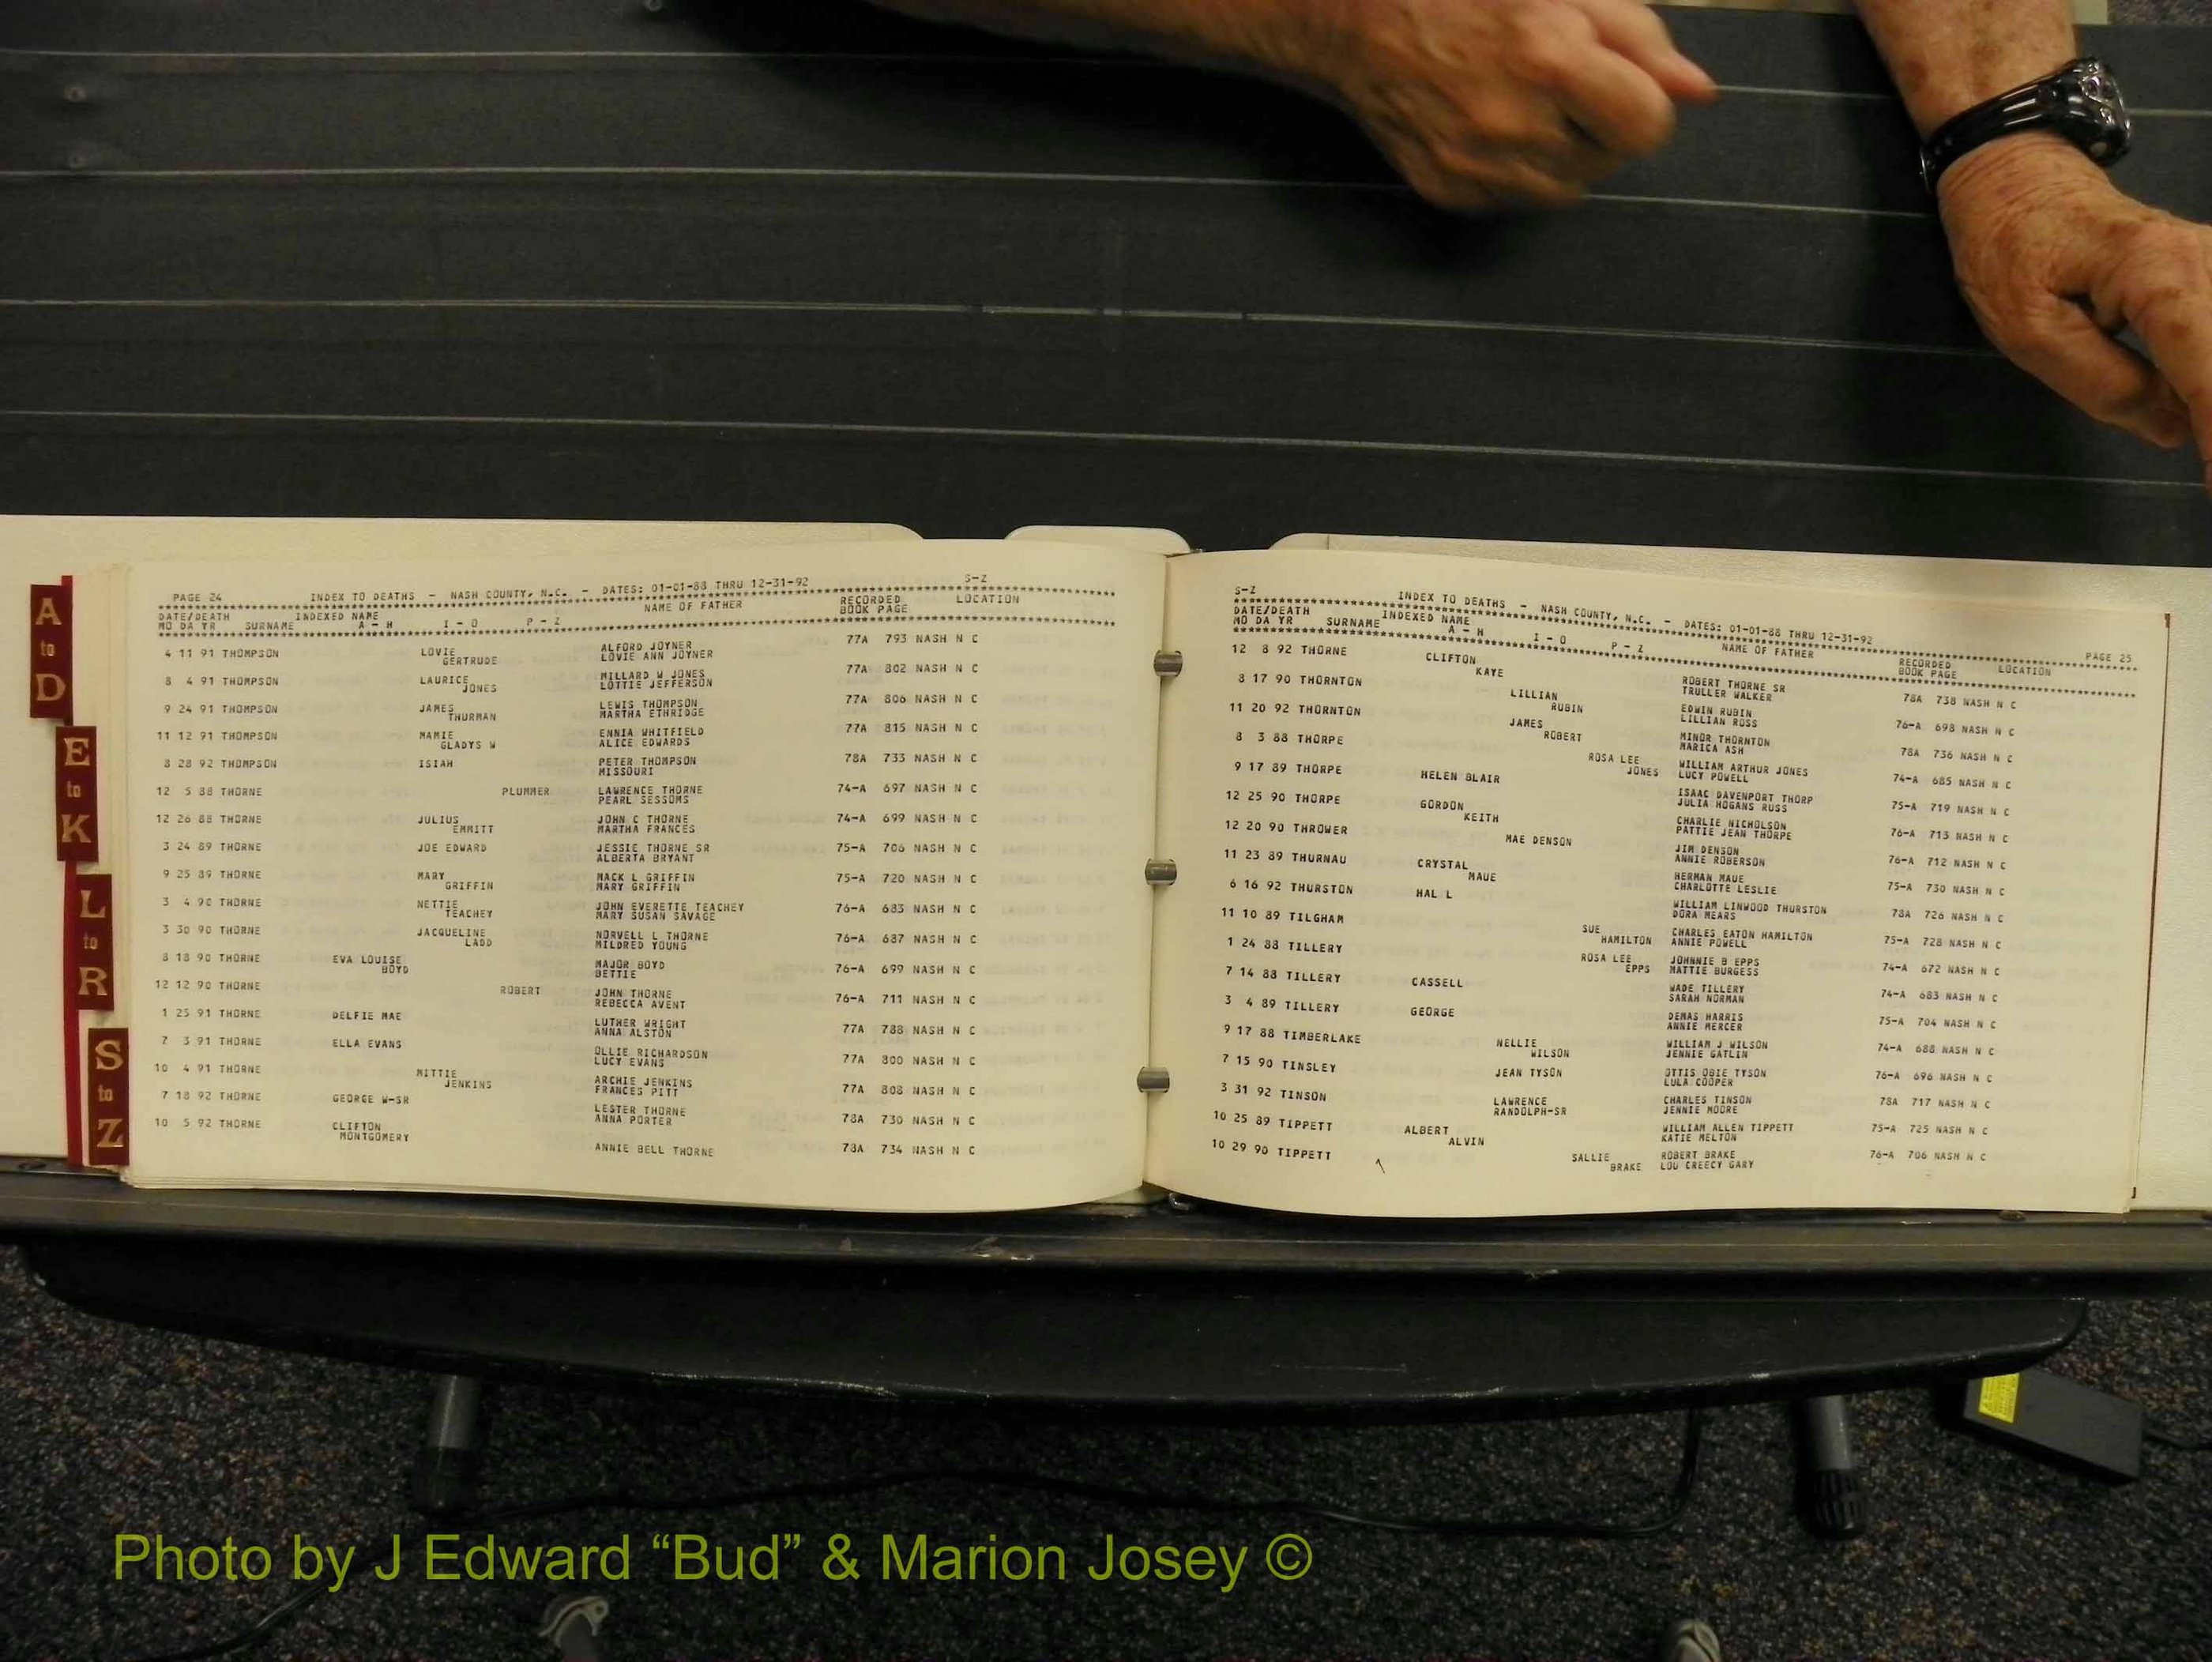 A to D
E to K
L to R
S to Z
PAGE 24 INDEX TO DEATHS - NASH COUNTY, N.C. - DATES: 01-01-88 THRU 12-31-92 S-Z
DATE/DEATH INDEXED NAME NAME OF FATHER RECORDED LOCATION
MO DA YR SURNAME A - H I - O P - Z BOOK PAGE
4 11 91 THOMPSON LOVIE ALFORD JOYNER 77A 793 NASH N C
GERTRUDE LOVIE ANN JOYNER
8 4 91 THOMPSON LAURICE MILLARD W JONES 77A 802 NASH N C
JONES LOTTIE JEFFERSON
9 24 91 THOMPSON JAMES LEWIS THOMPSON 77A 806 NASH N C
THURMAN MARTHA ETHRIDGE
11 12 91 THOMPSON MAMIE ENNIA WHITFIELD 77A 815 NASH N C
GLADYS W ALICE EDWARDS
8 28 92 THOMPSON ISIAH PETER THOMPSON 78A 733 NASH N C
MISSOURI
12 5 88 THORNE PLUMMER LAWRENCE THORNE 74-A 697 NASH N C
PEARL SESSOMS
12 26 88 THORNE JULIUS JOHN C THORNE 74-A 699 NASH N C
EMMITT MARTHA FRANCES
3 24 89 THORNE JOE EDWARD JESSIE THORNE SR 75-A 706 NASH N C
ALBERTA BRYANT
9 25 89 THORNE MARY MACK L GRIFFIN 75-A 720 NASH N C
GRIFFIN MARY GRIFFIN
3 4 90 THORNE NETTIE JOHN EVERETTE TEACHEY 76-A 683 NASH N C
TEACHEY MARY SUSAN SAVAGE
3 30 90 THORNE JACQUELINE NORVELL L THORNE 76-A 687 NASH N C
LADD MILDRED YOUNG
8 18 90 THORNE EVA LOUISE MAJOR BOYD 76-A 699 NASH N C
BOYD BETTIE
12 12 90 THORNE ROBERT JOHN THORNE 76-A 711 NASH N C
REBECCA AVENT
1 25 91 THORNE DELFIE MAE LUTHER WRIGHT 77A 788 NASH N C
ANNA ALSTON
7 3 91 THORNE ELLA EVANS OLLIE RICHARDSON 77A 800 NASH N C
LUCY EVANS
10 4 91 THORNE MITTIE ARCHIE JENKINS 77A 808 NASH N C
JENKINS FRANCES PITT
7 18 92 THORNE GEORGE W-SR LESTER THORNE 78A 730 NASH N C
ANNA PORTER
10 5 92 THORNE CLIFTON ANNIE BELL THORNE 78A 734 NASH N C
MONTGOMERY
S-Z INDEX TO DEATHS - NASH COUNTY, N.C. - DATES: 01-01-88 THRU 12-31-92 PAGE 25
DATE/DEATH INDEXED NAME NAME OF FATHER RECORDED LOCATION
MO DA YR SURNAME A - H I - O P - Z BOOK PAGE
12 8 92 THORNE CLIFTON ROBERT THORNE SR 78A 738 NASH N C
KAYE TRULLER WALKER
8 17 90 THORNTON LILLIAN EDWIN RUBIN 76-A 698 NASH N C
RUBIN LILLIAN ROSS
11 20 92 THORNTON JAMES MINOR THORNTON 78A 736 NASH N C
ROBERT MARICA ASH
8 3 88 THORPE ROSA LEE WILLIAM ARTHUR JONES 74-A 685 NASH N C
JONES LUCY POWELL
9 17 89 THORPE HELEN BLAIR ISAAC DAVENPORT THORP 75-A 719 NASH N C
JULIA HOGANS RUSS
12 25 90 THORPE GORDON CHARLIE NICHOLSON 76-A 713 NASH N C
KEITH PATTIE JEAN THORPE
12 20 90 THROWER MAE DENSON JIM DENSON 76-A 712 NASH N C
ANNIE ROBERSON
11 23 89 THURNAU CRYSTAL HERMAN MAUE 75-A 730 NASH N C
MAUE CHARLOTTE LESLIE
6 16 92 THURSTON HAL L WILLIAM LINWOOD THURSTON 78A 726 NASH N C
DORA MEARS
11 10 89 TILGHAM SUE CHARLES EATON HAMILTON 75-A 728 NASH N C
HAMILTON ANNIE POWELL
1 24 88 TILLERY ROSA LEE JOHNNIE B EPPS 74-A 672 NASH N C
EPPS MATTIE BURGESS
7 14 88 TILLERY CASSELL WADE TILLERY 74-A 683 NASH N C
SARAH NORMAN
3 4 89 TILLERY GEORGE DEMAS HARRIS 75-A 704 NASH N C
ANNIE MERCER
9 17 88 TIMBERLAKE NELLIE WILLIAM J WILSON 74-A 688 NASH N C
WILSON JENNIE GATLIN
7 15 90 TINSLEY JEAN TYSON OTTIS OBIE TYSON 76-A 696 NASH N C
LULA COOPER
3 31 92 TINSON LAWRENCE CHARLES TINSON 78A 717 NASH N C
RANDOLPH-SR JENNIE MOORE
10 25 89 TIPPETT ALBERT WILLIAM ALLEN TIPPETT 75-A 725 NASH N C
ALVIN KATIE MELTON
10 29 90 TIPPETT SALLIE ROBERT BRAKE 76-A 706 NASH N C
BRAKE LOU CREECY GARY
Photo by J Edward “Bud” & Marion Josey ©